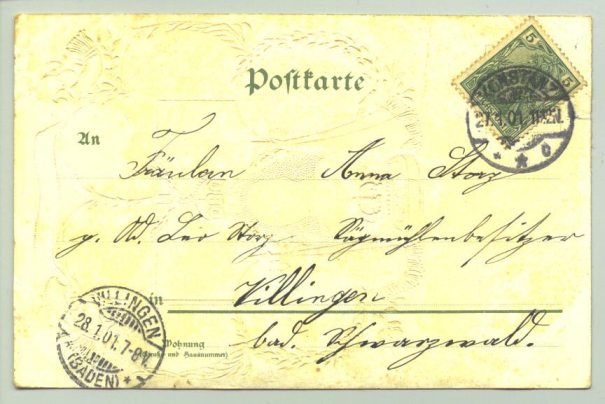 Postkarte
5 5
KONSTANZ
27.1.01.
* * c
An
Fräulein Anna Storz
p. Ad. Leo Storz Sägmühlenbesitzer
in Villingen
Wohnung
(Straße und Hausnummer)
bad. Schwarzwald.
VILLINGEN
28.1.01.7-8V.
(BADEN)